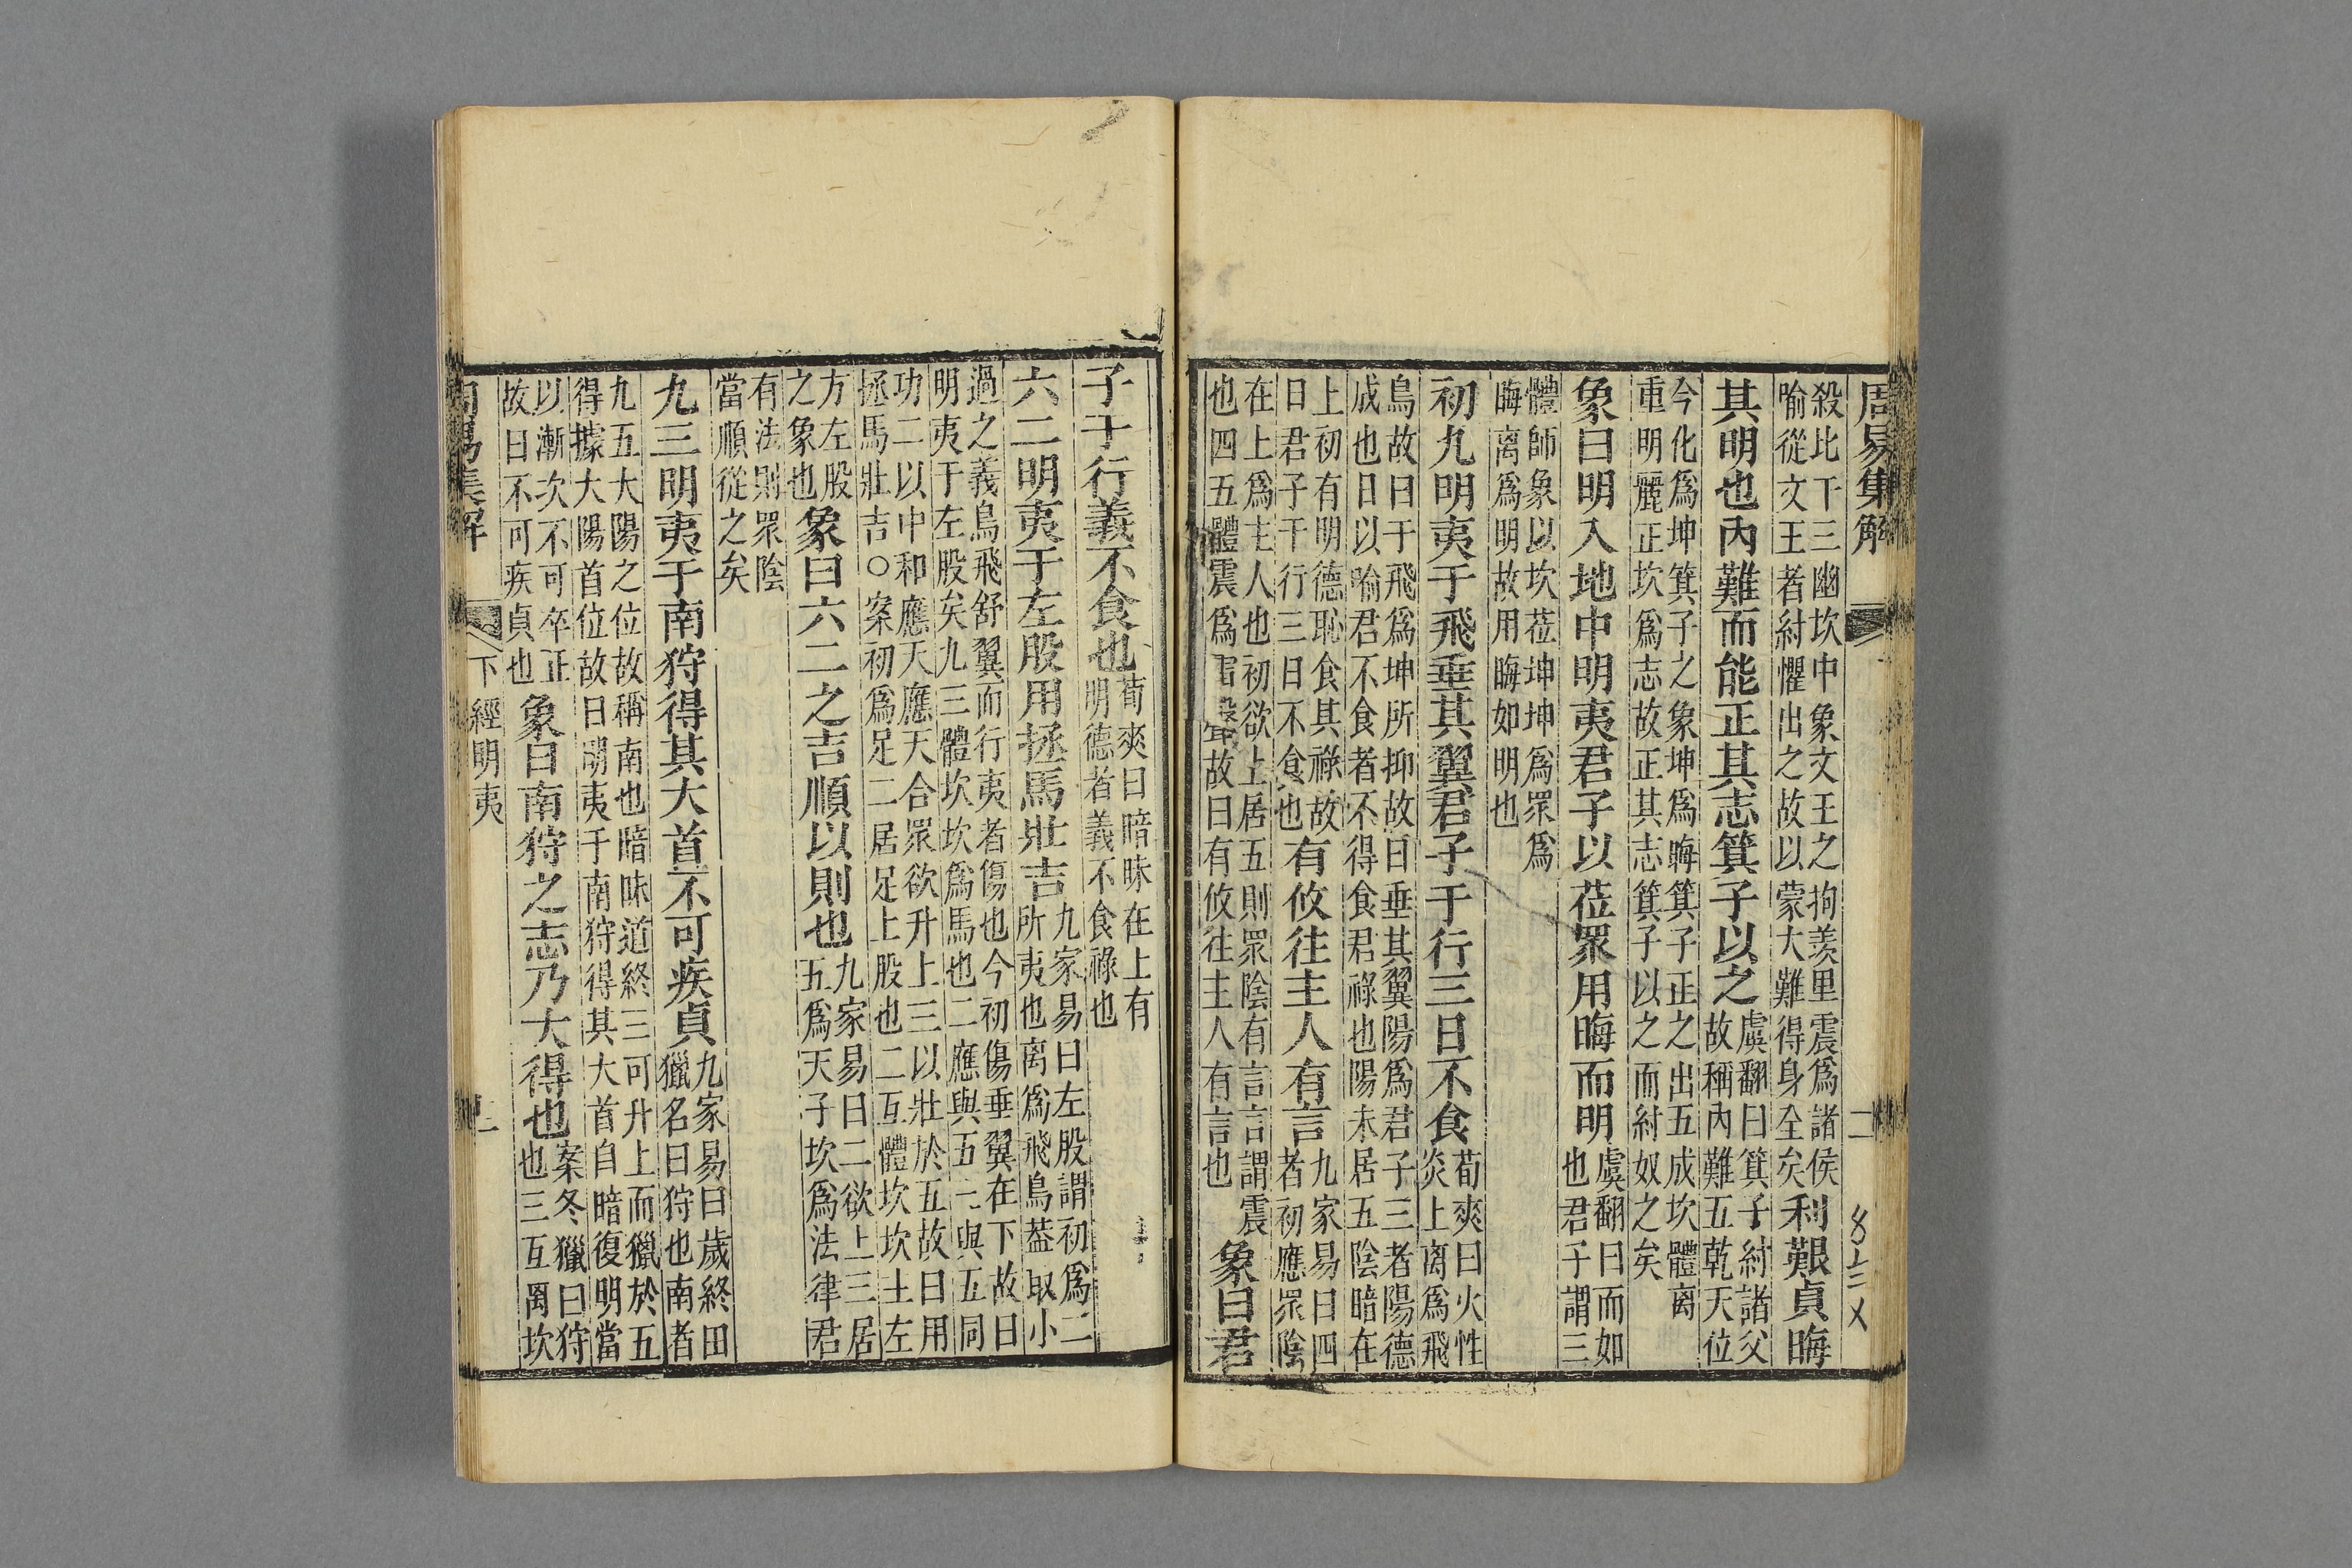 周易集解 二
殺比干三幽坎中象文王之拘羑里震爲諸侯
喻從文王者紂懼出之故以蒙大難得身全矣
利艱貞晦
其明也內難而能正其志箕子以之
虞翻曰箕子紂諸父
故稱內難五乾天位
今化爲坤箕子之象坤爲晦箕子正之出五成坎體离
重明麗正坎爲志故正其志箕子以之而紂奴之矣
象曰明入地中明夷君子以莅眾用晦而明
虞翻曰而如
也君子謂三
體師象以坎莅坤坤爲眾爲
晦离爲明故用晦如明也
初九明夷于飛垂其翼君子于行三日不食
荀爽曰火性
炎上离爲飛
鳥故曰于飛爲坤所抑故曰垂其翼陽爲君子三者陽德
成也日以喻君不食者不得食君祿也陽未居五陰暗在
上初有明德恥食其祿故
曰君子于行三日不食也
有攸往主人有言
九家易曰四
者初應眾陰
在上爲主人也初欲上居五則眾陰有言言謂震
也四五體震爲雷聲故曰有攸往主人有言也
象曰君
子于行義不食也
荀爽曰暗昧在上有
明德者義不食祿也
六二明夷于左股用拯馬壯吉
九家易曰左股謂初爲二
所夷也离爲飛鳥葢取小
過之義鳥飛舒翼而行夷者傷也今初傷垂翼在下故曰
明夷于左股矣九三體坎坎爲馬也二應與五三與五同
功二以中和應天應天合眾欲升上三以壯於五故曰用
拯馬壯吉○案初爲足二居足上股也二互體坎坎主左
方左股
之象也
象曰六二之吉順以則也
九家易曰二欲上三居
五爲天子坎爲法律君
有法則眾陰
當順從之矣
九三明夷于南狩得其大首不可疾貞
九家易曰歲終田
獵名曰狩也南者
九五大陽之位故稱南也暗昧道終三可升上而獵於五
得據大陽首位故曰明夷于南狩得其大首自暗復明當
以漸次不可卒正
故曰不可疾貞也
象曰南狩之志乃大得也
案冬獵曰狩
也三互离坎
周易集解 下經明夷 三